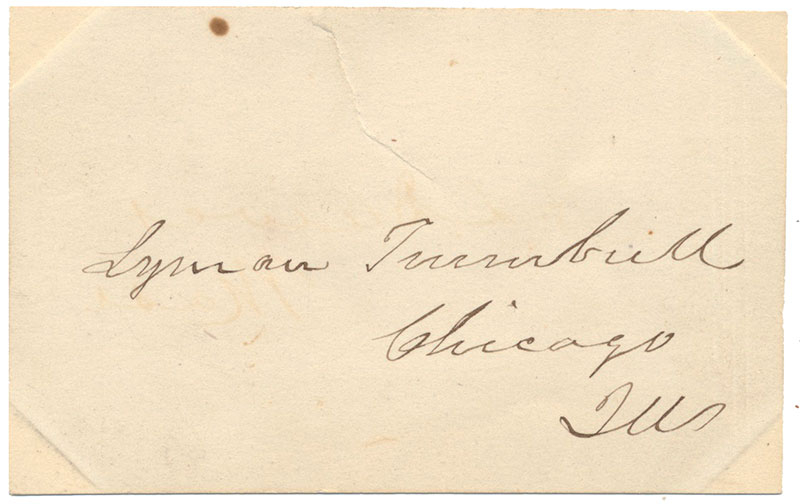 Lyman Trumbull
Chicago
Ills